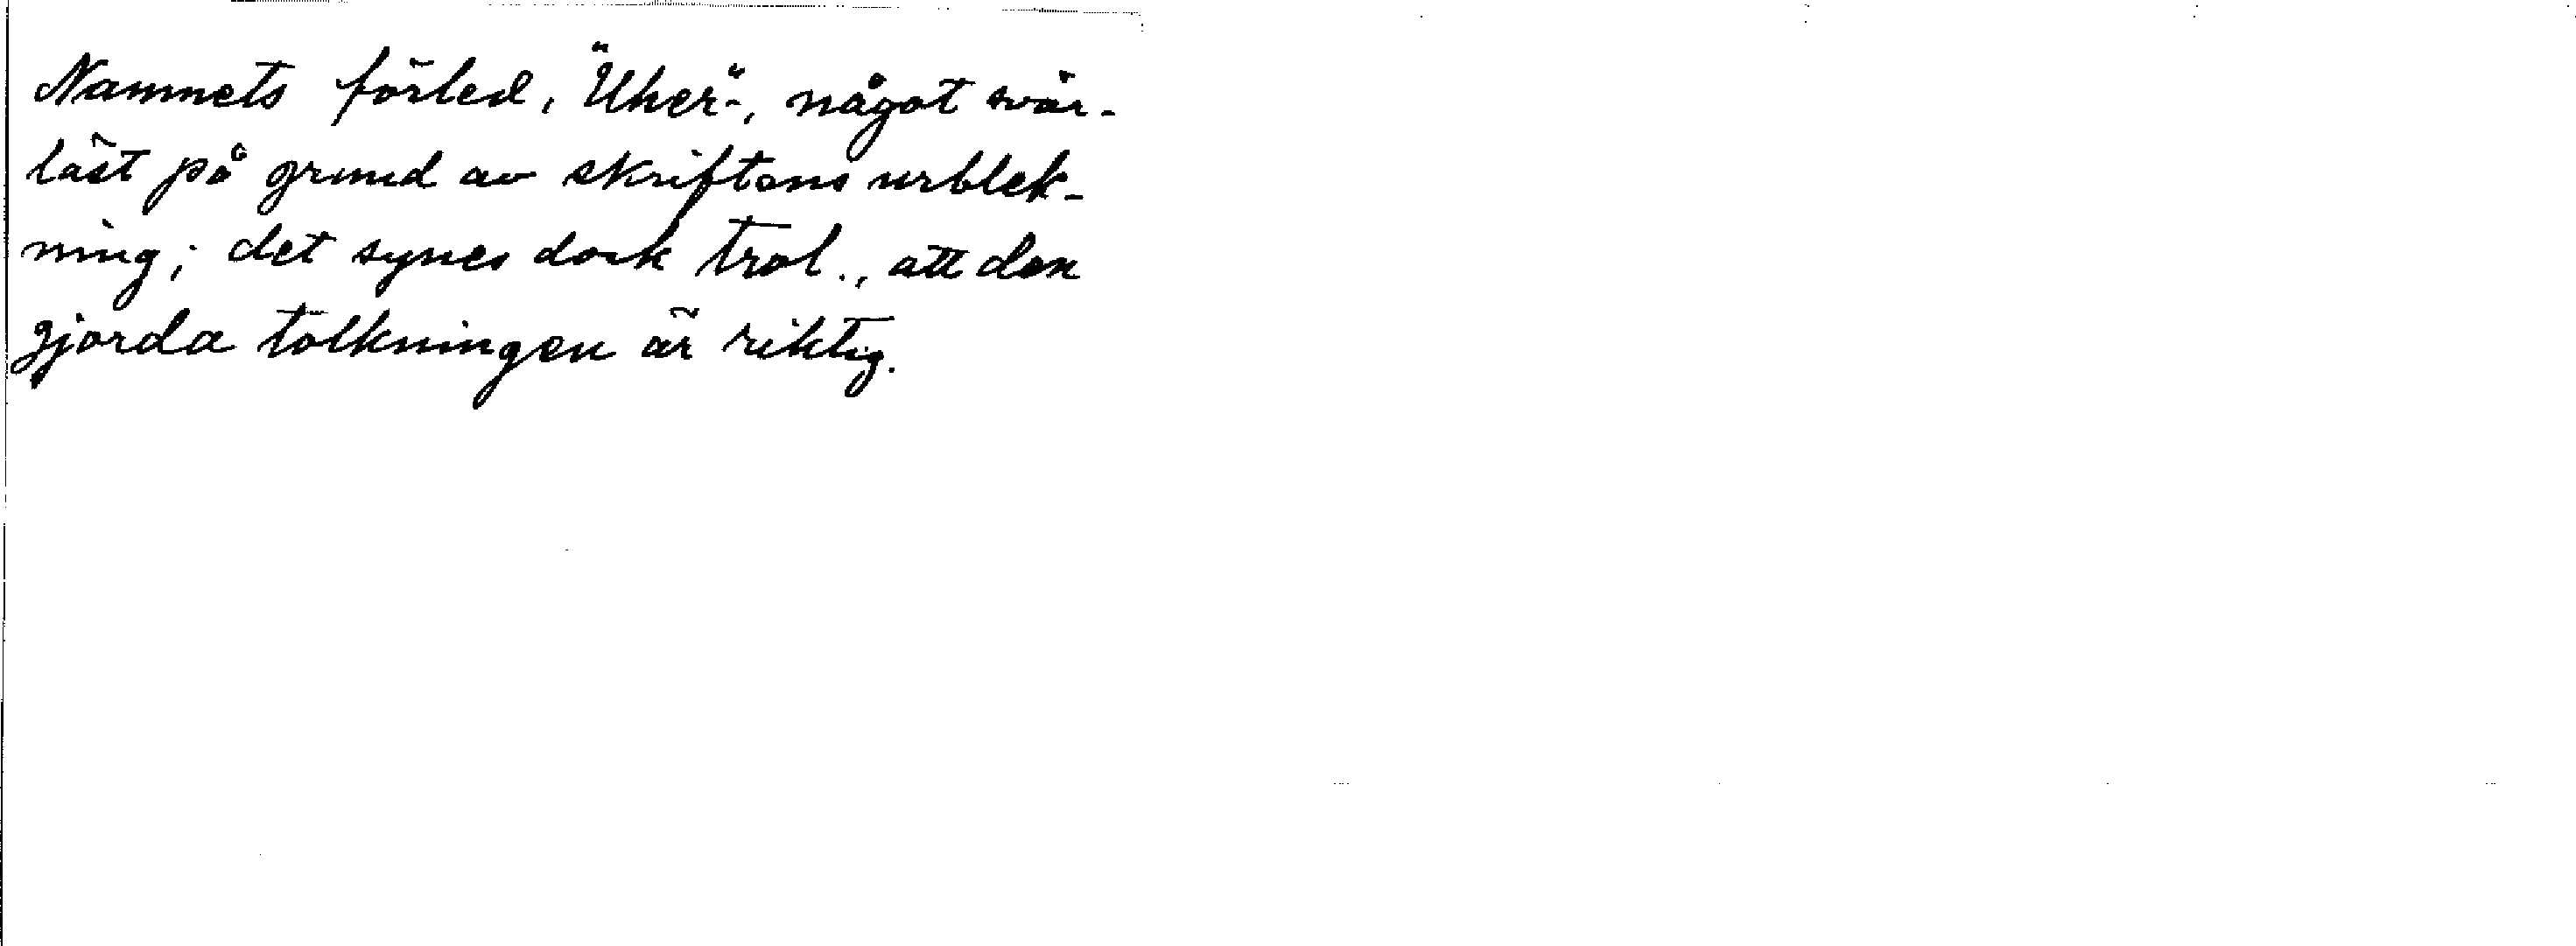 Namnets förled, "Uher"-, något svår-
läst på grund av skriftens urblek-
ning; det synes dock trol., att den
gjorda tolkningen är riktig.